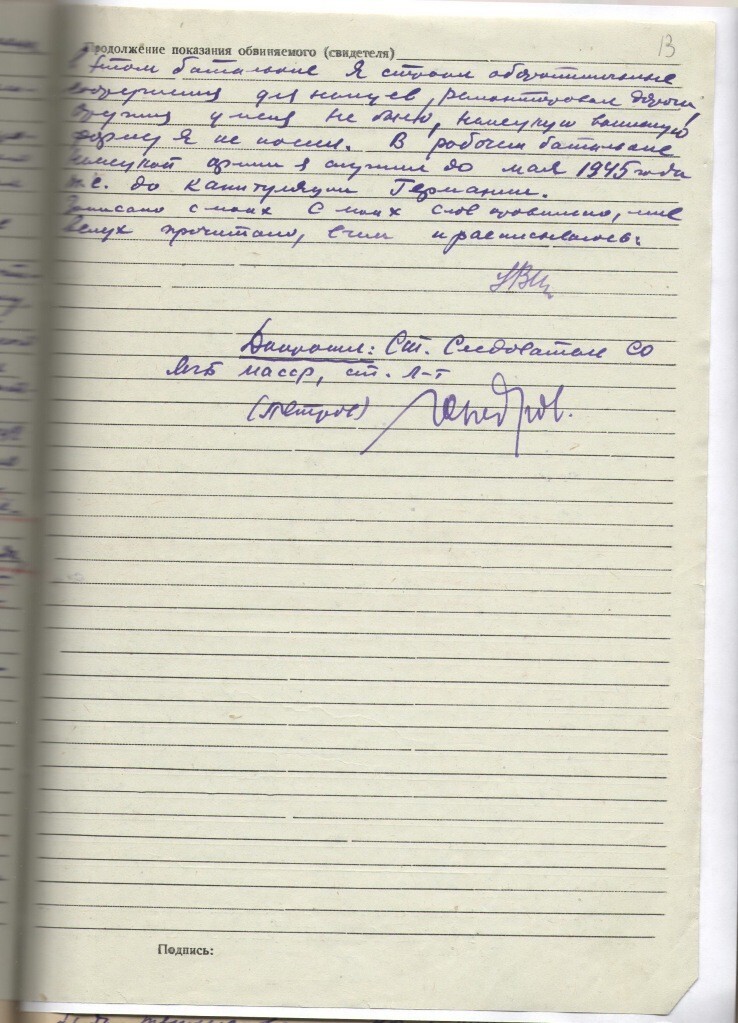 13
Продолжение показания обвиняемого (свидетеля)
этом батальоне я строил оборонительные
сооружения для немцев, ремонтировал дороги,
оружия у меня не было, немецкую военную
форму я не носил. В рабочем батальоне
немецкой армии я служил до мая 1945 года
т.е. до капитуляции Германии.
Записано с моих с моих слов правильно, мне
вслух прочитано, в чем и расписываюсь:
Допросил: Ст. Следователь СО
МАССР, ст. л-т
(Петров)
Подпись: